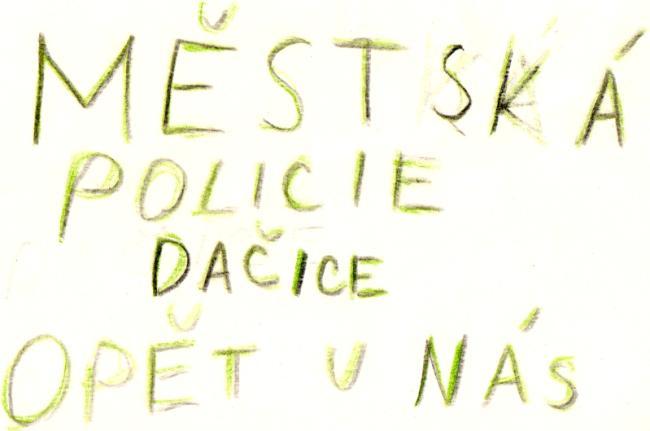 MĚSTSKÁ
POLICIE
DAČICE
OPĚT U NÁS